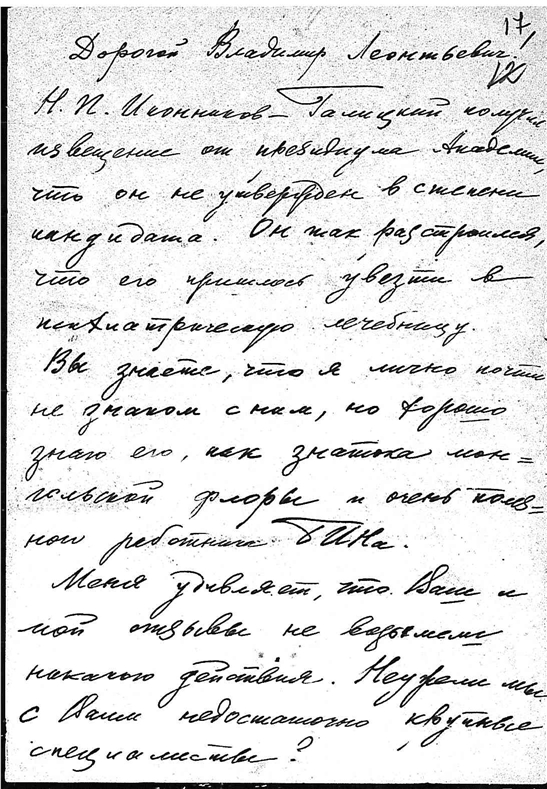 17/
IX
Дорогой Владимир Леонтьевич!
Н. П. Иконников-Галицкий получил
извещение от президиума Академии,
что он не утвержден в степени
кандидата. Он так расстроился,
что его пришлось увезти в
психиатрическую лечебницу.
Вы знаете, что я лично почти
не знаком с ним, но хорошо
знаю его, как знатока мон=
гольской флоры и очень полез=
ного работника БИНа.
Меня удивляет, что Ваш и
мой отзывы не возымели
никакого действия. Неужели мы
с Вами недостаточно крупные
специалисты?